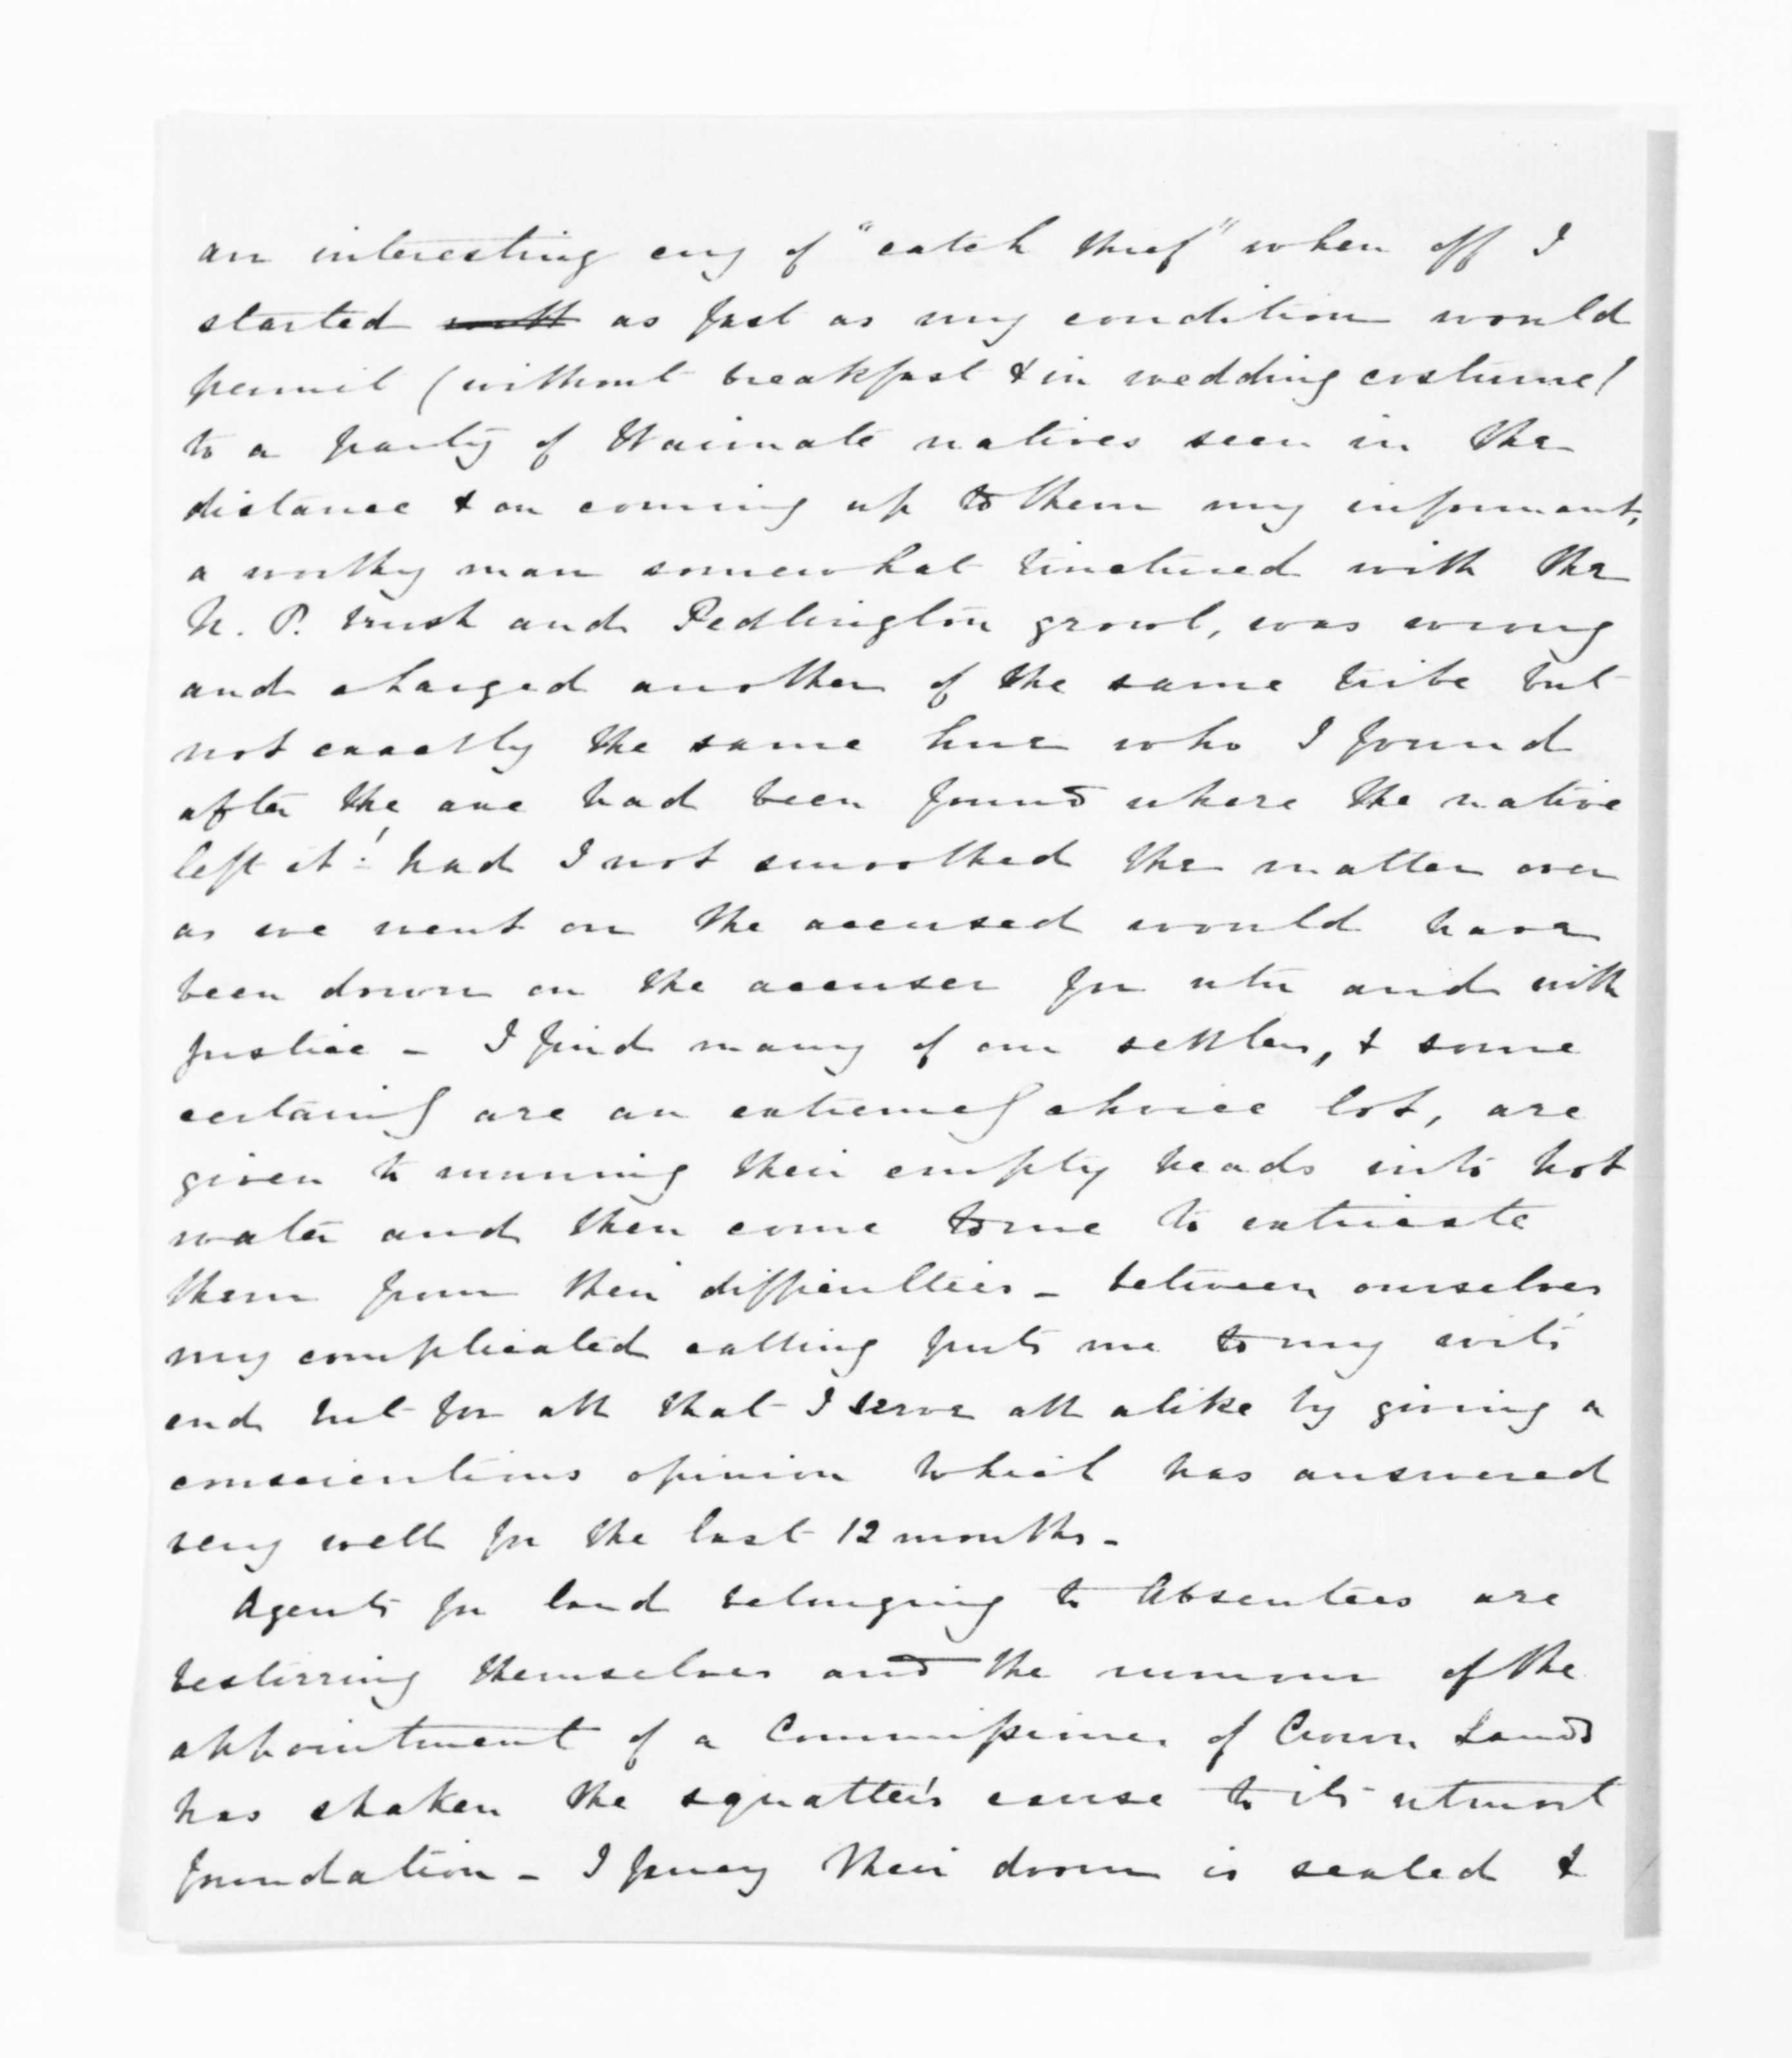 an interesting cry of "catch thief" when off I
started as fast as my condition would
permit (without breakfast & in wedding costume)
to a party of Waimate natives seen in the
distance & on coming up to them my informant,
a worthy man somewhat tinctured with the
N. P. brush and Pedlington growl, was wrong
and charged another of the same tribe but
not exactly the same hue who I found
after the axe had been found where the native
left it! had I not smoothed the matter over
as we went on the accused would have
been down on the accuser for utu and with
justice - I find many of our settlers, & some
certainly are an extremely choice lot, are
given to running their empty heads into hot
water and then come to me to extricate
them from their difficulties - between ourselves
my complicated calling puts me to my wits'
end but for all that I serve all alike by giving a
conscientious opinion which has answered
very well for the last 12 months -
Agents for land belonging to Absentees are
bestirring themselves and the rumour of the
appointment of a Commissioner of Crown Lands
has shaken the squatter's cause to its utmost
foundation - I fancy their doom is sealed &